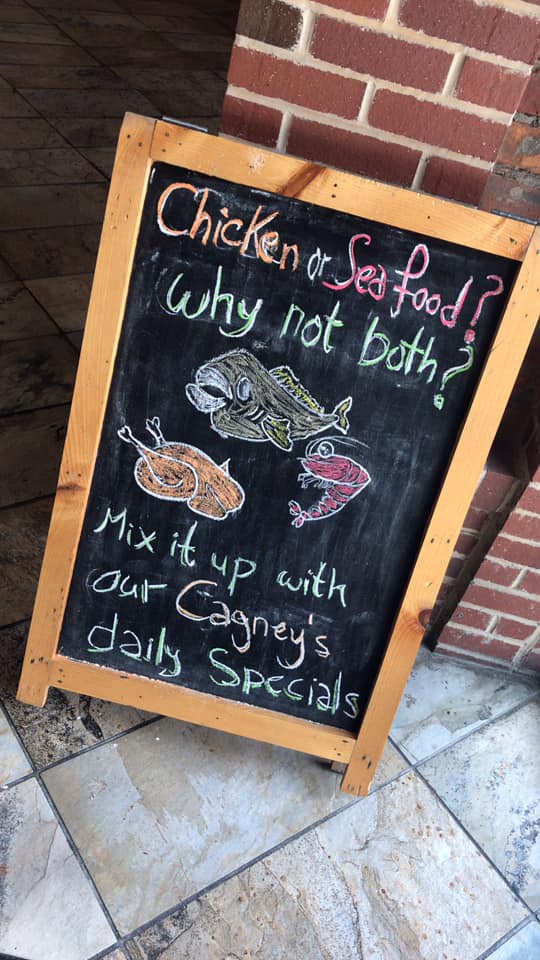 Chicken or Seafood?
Why not both?
Mix it up with
our Cagney's
daily Specials